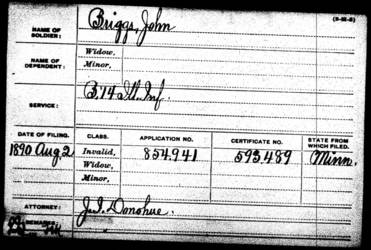 (3-55-5)
NAME OF SOLDIER: Briggs, John
NAME OF DEPENDENT: Widow,
Minor,
SERVICE: B. 14 Ill. Inf.
DATE OF FILING. CLASS. APPLICATION NO. CERTIFICATE NO. STATE FROM WHICH FILED.
1890 Aug. 2 Invalid, 854.941 593.489 Minn.
Widow,
Minor,
ATTORNEY: J. I. Donohue.
REMARKS: